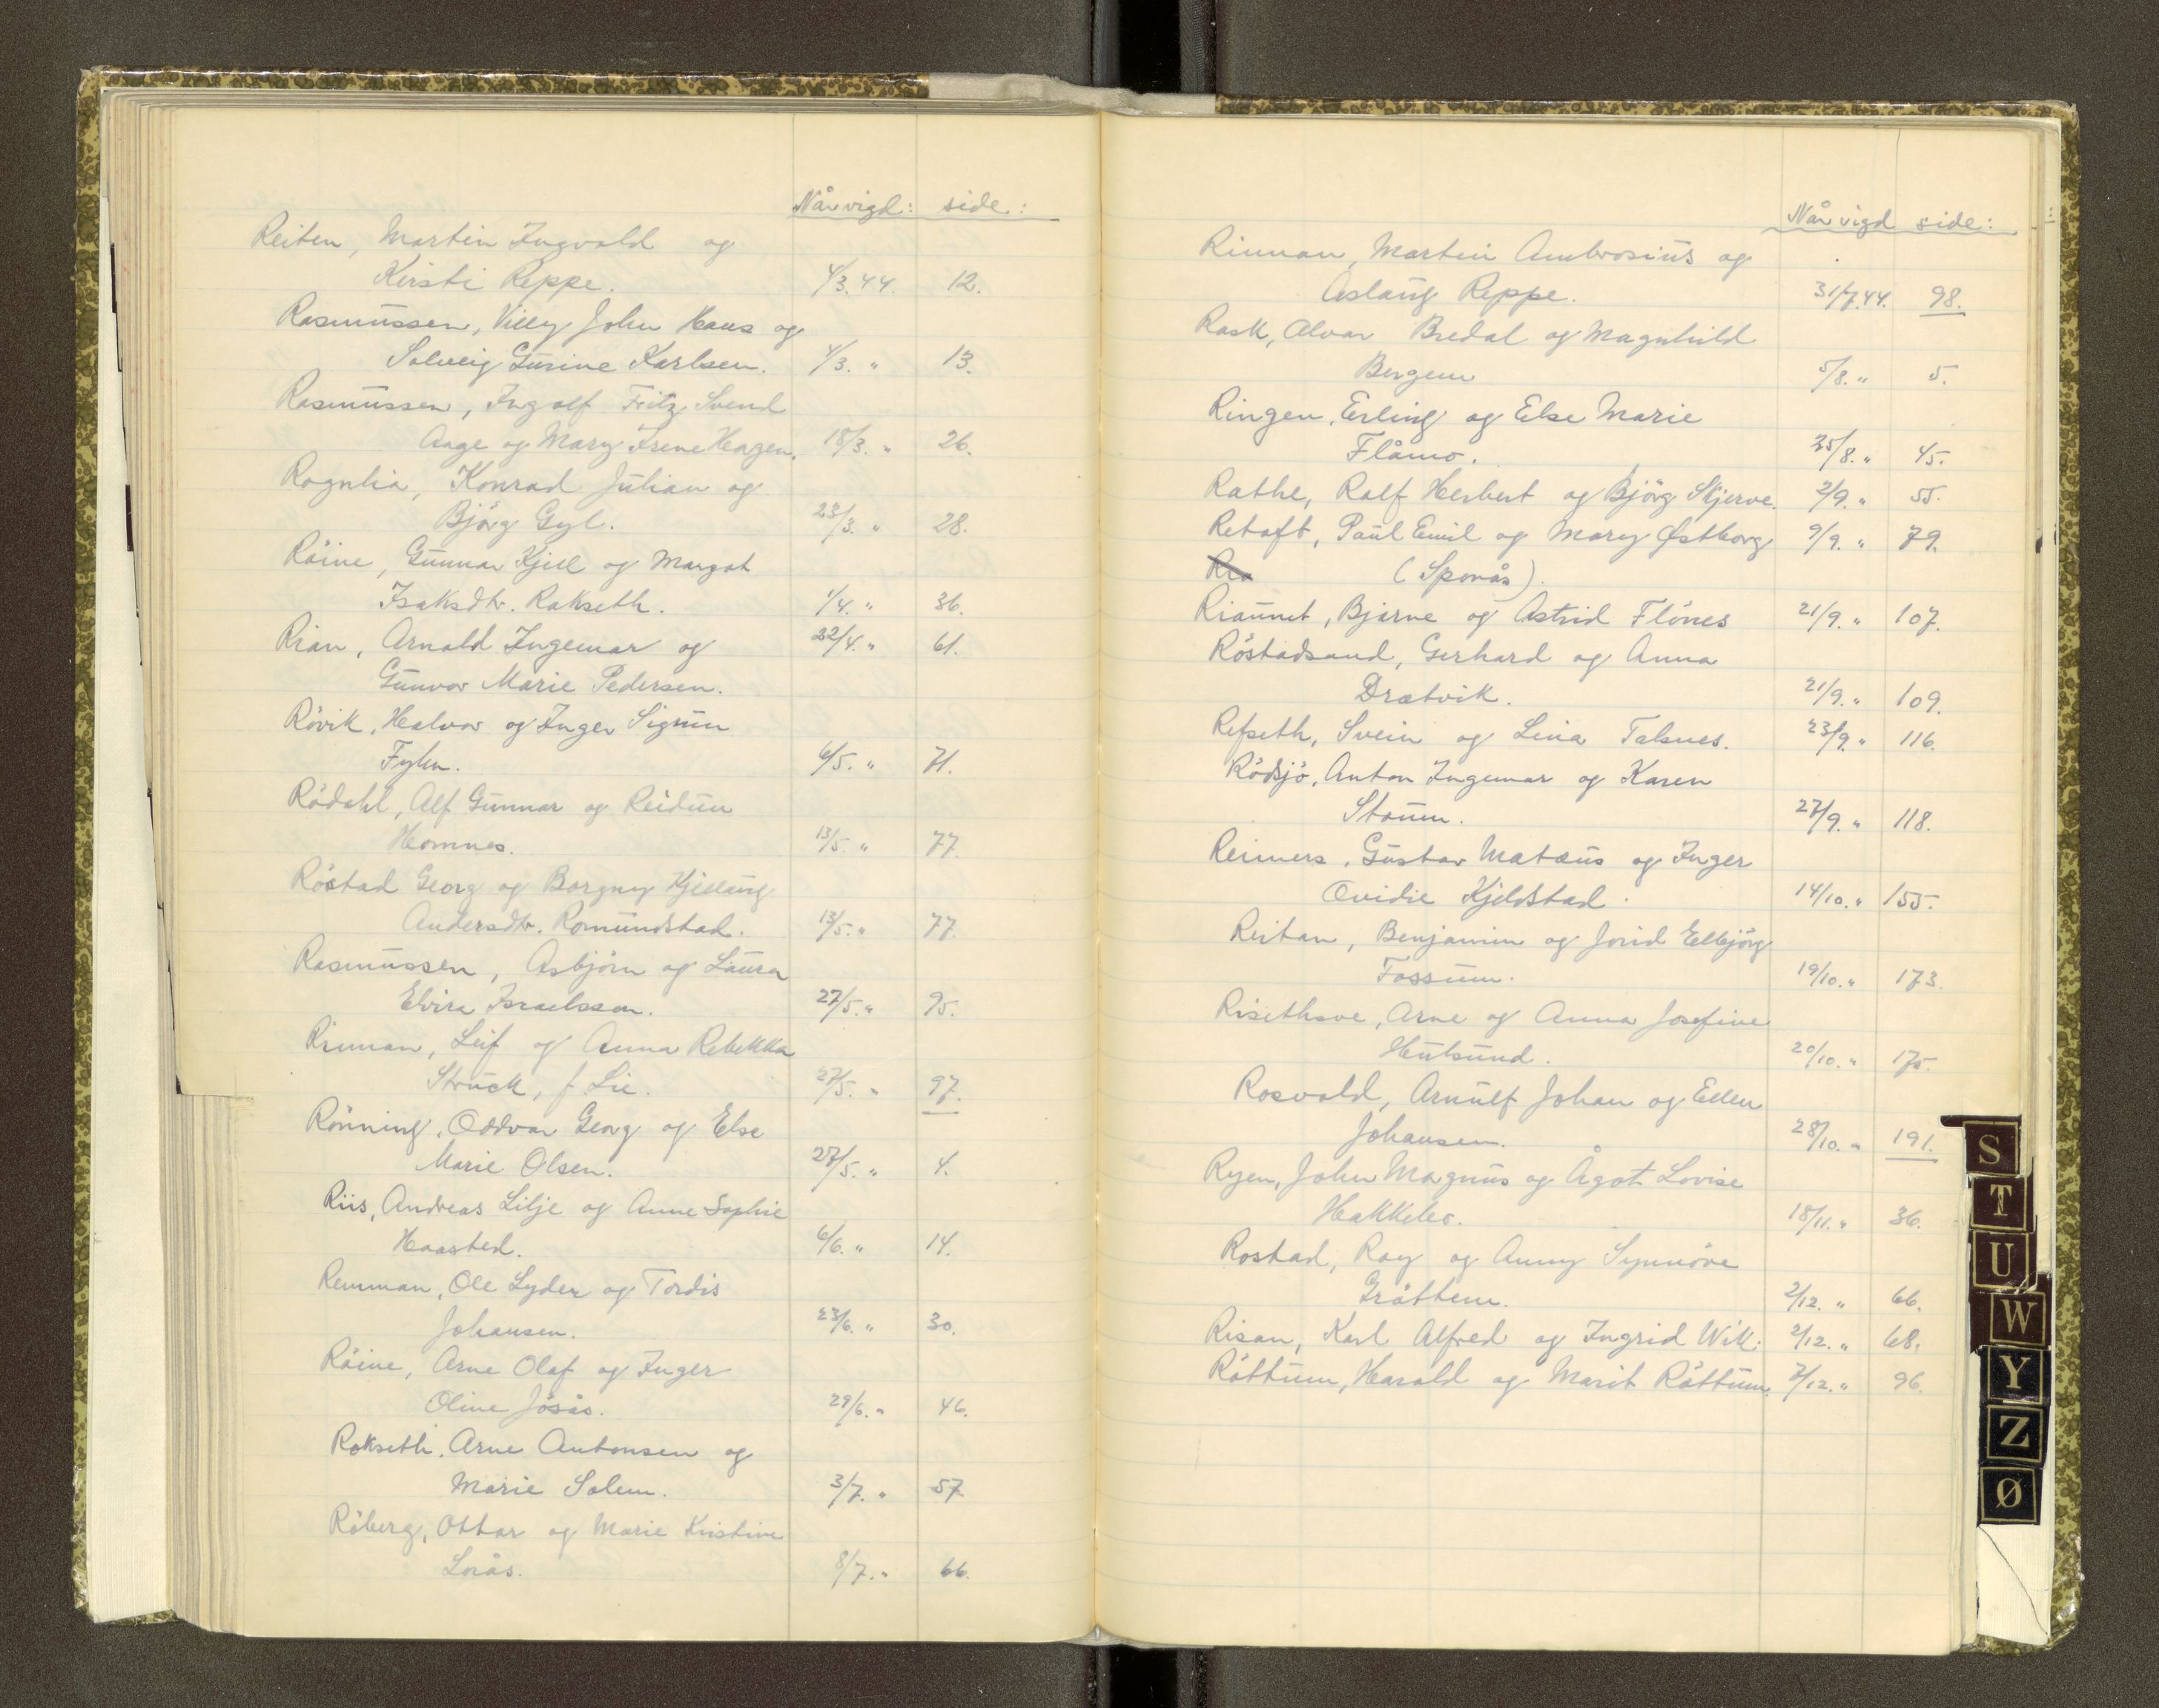 Når vigd: side:
Reiten, Martin Ingvald og
Kirsti Reppe. 4/3.44. 12.
Rasmussen, Villy John Hans og
Solveig Gurine Karlsen. 4/3. " 13.
Rasmussen, Ingolf Fritz Svend
Aage og Mary Irene Hagen. 18/3. " 26.
Rognlia, Konrad Julian og
Bjørg Gyl. 23/3. " 28.
Råine, Gunnar Kjell og Margot
Isaksdtr. Rokseth. 1/4. " 36.
Rian, Arnold Ingemar og 22/4. " 61.
Gunvor Marie Pedersen.
Rövik, Halvor og Inger Sigrun
Fylen. 6/5. " 71.
Rödahl, Alf Gunnar og Reidun
Homnes. 13/5. " 77.
Röstad Georg og Borgny Kjellaug
Andersdtr. Romundstad. 13/5. " 77.
Rasmussen, Asbjörn og Laura
Elvira Israelsson. 27/5. " 95.
Rinnan, Leif og Anna Rebekka
Struck, f. Lie. 27/5. " 97.
Rönning, Oddvar Georg og Else
Marie Olsen. 27/5. " 4.
Riis, Andreas Lilje og Anne Sophie
Haasted. 6/6. " 14.
Remman, Ole Lyder og Tordis
Johansen. 23/6. " 30.
Råine, Arne Olaf og Inger
Oline Jösås. 29/6. " 46.
Rokseth, Arne Antonsen og
Marie Solem. 3/7. " 57.
Råberg, Ottar og Marie Kristine
Lorås. 8/7. " 66.
Når vigd side:
Rinnan, Martin Ambrosius og
Aslaug Reppe. 31/7.44. 98.
Rask, Alvar Bredal og Magnhild
Bergem 5/8. " 5.
Ringen, Erling og Else Marie
Flåmo. 25/8. " 45.
Rathe, Ralf Herbert og Bjørg Skjerve. 2/9. " 55.
Retoft, Paul Emil og Mary Østborg 9/9. " 79.
Ria (Sponås).
Riaunet, Bjarne og Astrid Flönes 21/9. " 107.
Röstadsand, Gerhard og Anna
Drætvik. 21/9. " 109.
Refseth, Svein og Lina Talsnes. 23/9. " 116.
Rödsjö, Anton Ingemar og Karen
Staum. 27/9. " 118.
Reimers, Gustav Matæus og Inger
Ovidie Kjeldstad. 14/10. " 155.
Reitan, Benjamin og Jorid Ellbjörg
Fossum. 19/10. " 173.
Risethhove, Arne og Anna Josefine
Hulsund. 20/10. " 175.
Rosvold, Arnulf Johan og Ellen
Johansen. 28/10. " 191.
Ryen, John Magnus og Ågot Lovise
Hakkebo. 18/11. " 36.
Rostad, Roy og Anny Synnöve
Gråttem. 2/12. " 66.
Risan, Karl Alfred og Ingrid Wik. 2/12. " 68.
Råttum, Harald og Marit Råttum. 7/12. " 96.
S
T
U
W
Y
Z
Ø